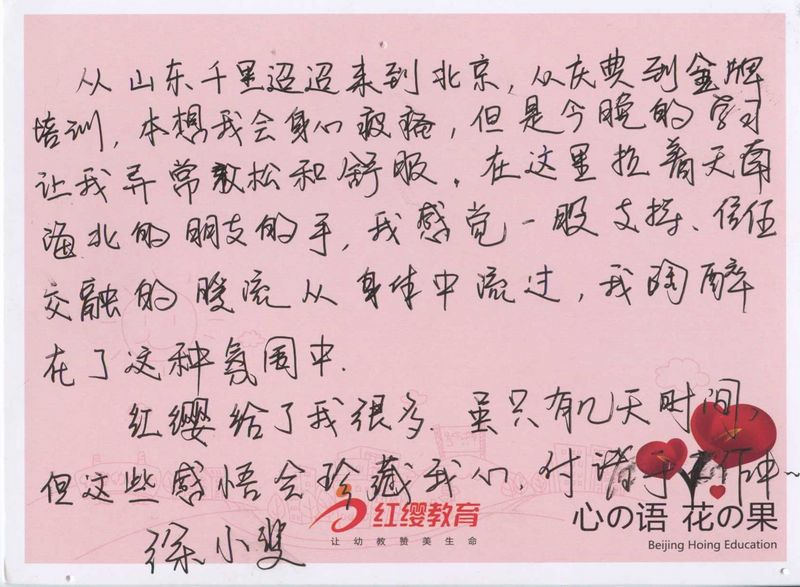 从山东千里迢迢来到北京,从庆典到金牌
培训,本想我会身心疲惫,但是今晚的学习
让我异常放松和舒服。在这里拉着天南
海北的朋友的手,我感觉一股支持、信任
交融的暖流从身体中流过,我陶醉
在了这种氛围中.
红缨给了我很多.虽只有几天时间,
但这些感悟会珍藏我心,付诸于工作中~
徐小斐
红缨教育
让幼教赞美生命
心の语 花の果
Beijing Hoing Education